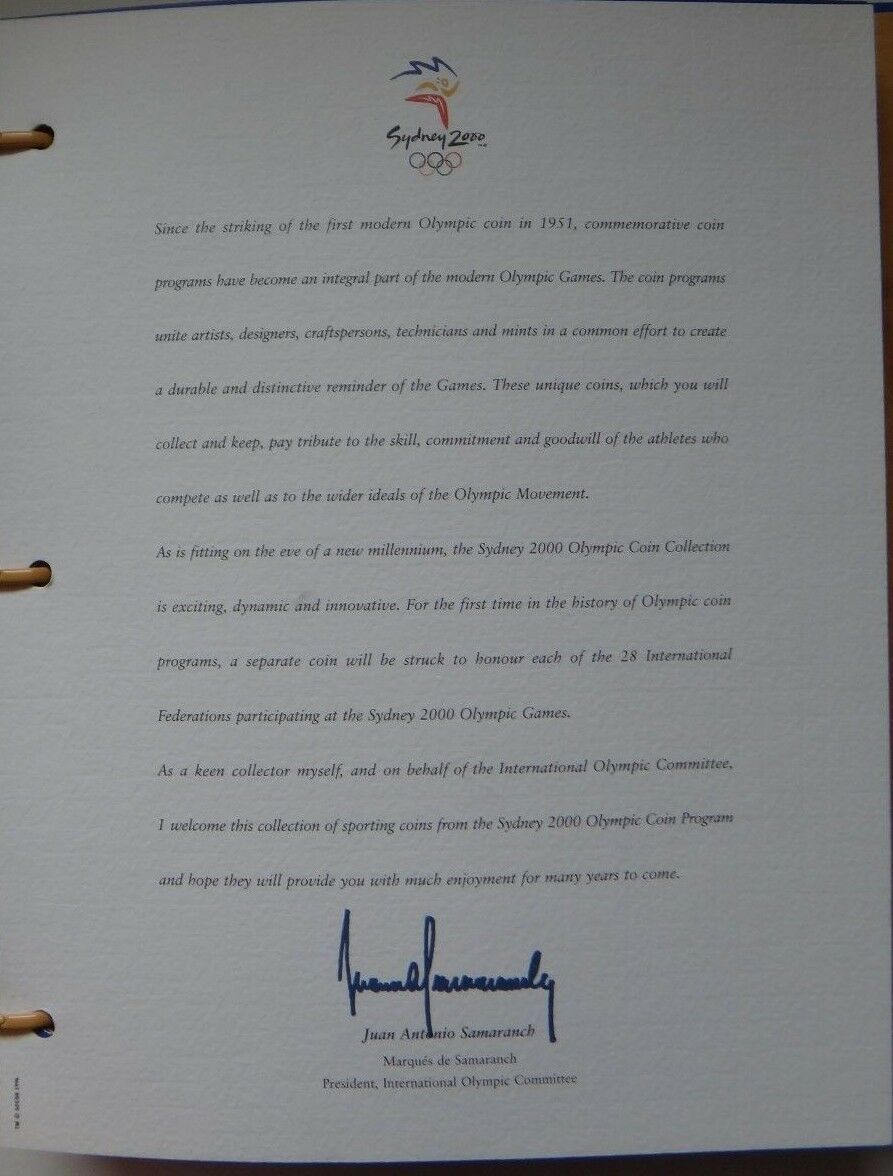 Sydney 2000
Since the striking of the first modern Olympic coin in 1951, commemorative coin
programs have become an integral part of the modern Olympic Games. The coin programs
unite artists, designers, craftspersons, technicians and mints in a common effort to create
a durable and distinctive reminder of the Games. These unique coins, which you will
collect and keep, pay tribute to the skill, commitment and goodwill of the athletes who
compete as well as to the wider ideals of the Olympic Movement.
As is fitting on the eve of a new millennium, the Sydney 2000 Olympic Coin Collection
is exciting, dynamic and innovative. For the first time in the history of Olympic coin
programs, a separate coin will be struck to honour each of the 28 International
Federations participating at the Sydney 2000 Olympic Games.
As a keen collector myself, and on behalf of the International Olympic Committee,
I welcome this collection of sporting coins from the Sydney 2000 Olympic Coin Program
and hope they will provide you with much enjoyment for many years to come.
Juan Antonio Samaranch
Marqués de Samaranch
President, International Olympic Committee